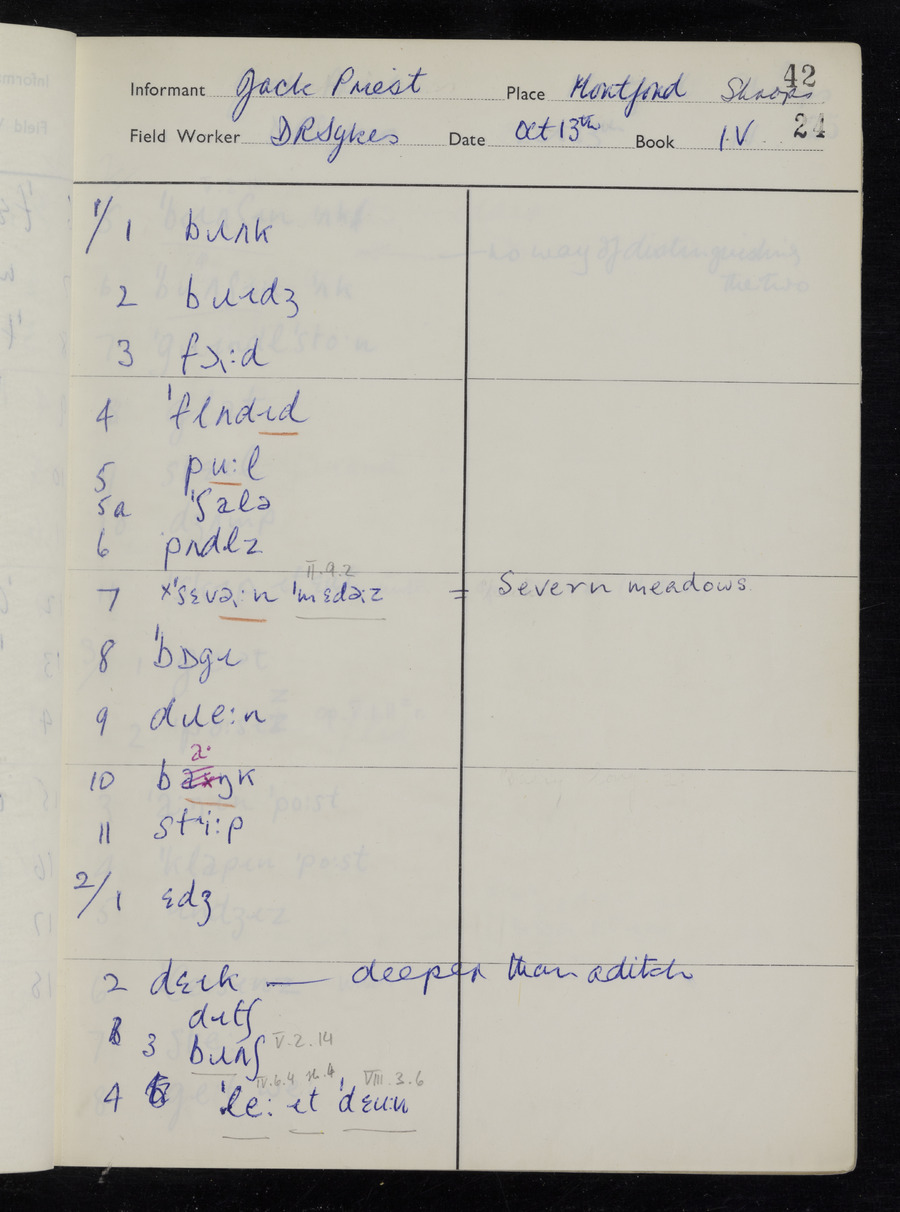 42
Informant Jack Priest Place Montford Shrops
Field Worker D R Sykes Date Oct 13th Book I.V 24
1/1 bɹʌk
2 bɹɪdʒ
3 fɔ:d
4 ˈflʌdɪd
5 pu:l
5a ˈʃalə
6 pʌdlz
II.9.2
7 ˣˈsɛvə:n ˈmɛdəz = Severn meadows
8 ˈbɒgɪ
9 dɹe:n
10 baŋk
11 stɹi:p
2/1 ɛdʒ
2 dɛɪk — deeper than a ditch
dɪtʃ
3 bɹʌʃ V.2.14
IV.6.4 VIII.3.6
4 ˈle: ɪt ˈdɛu:n